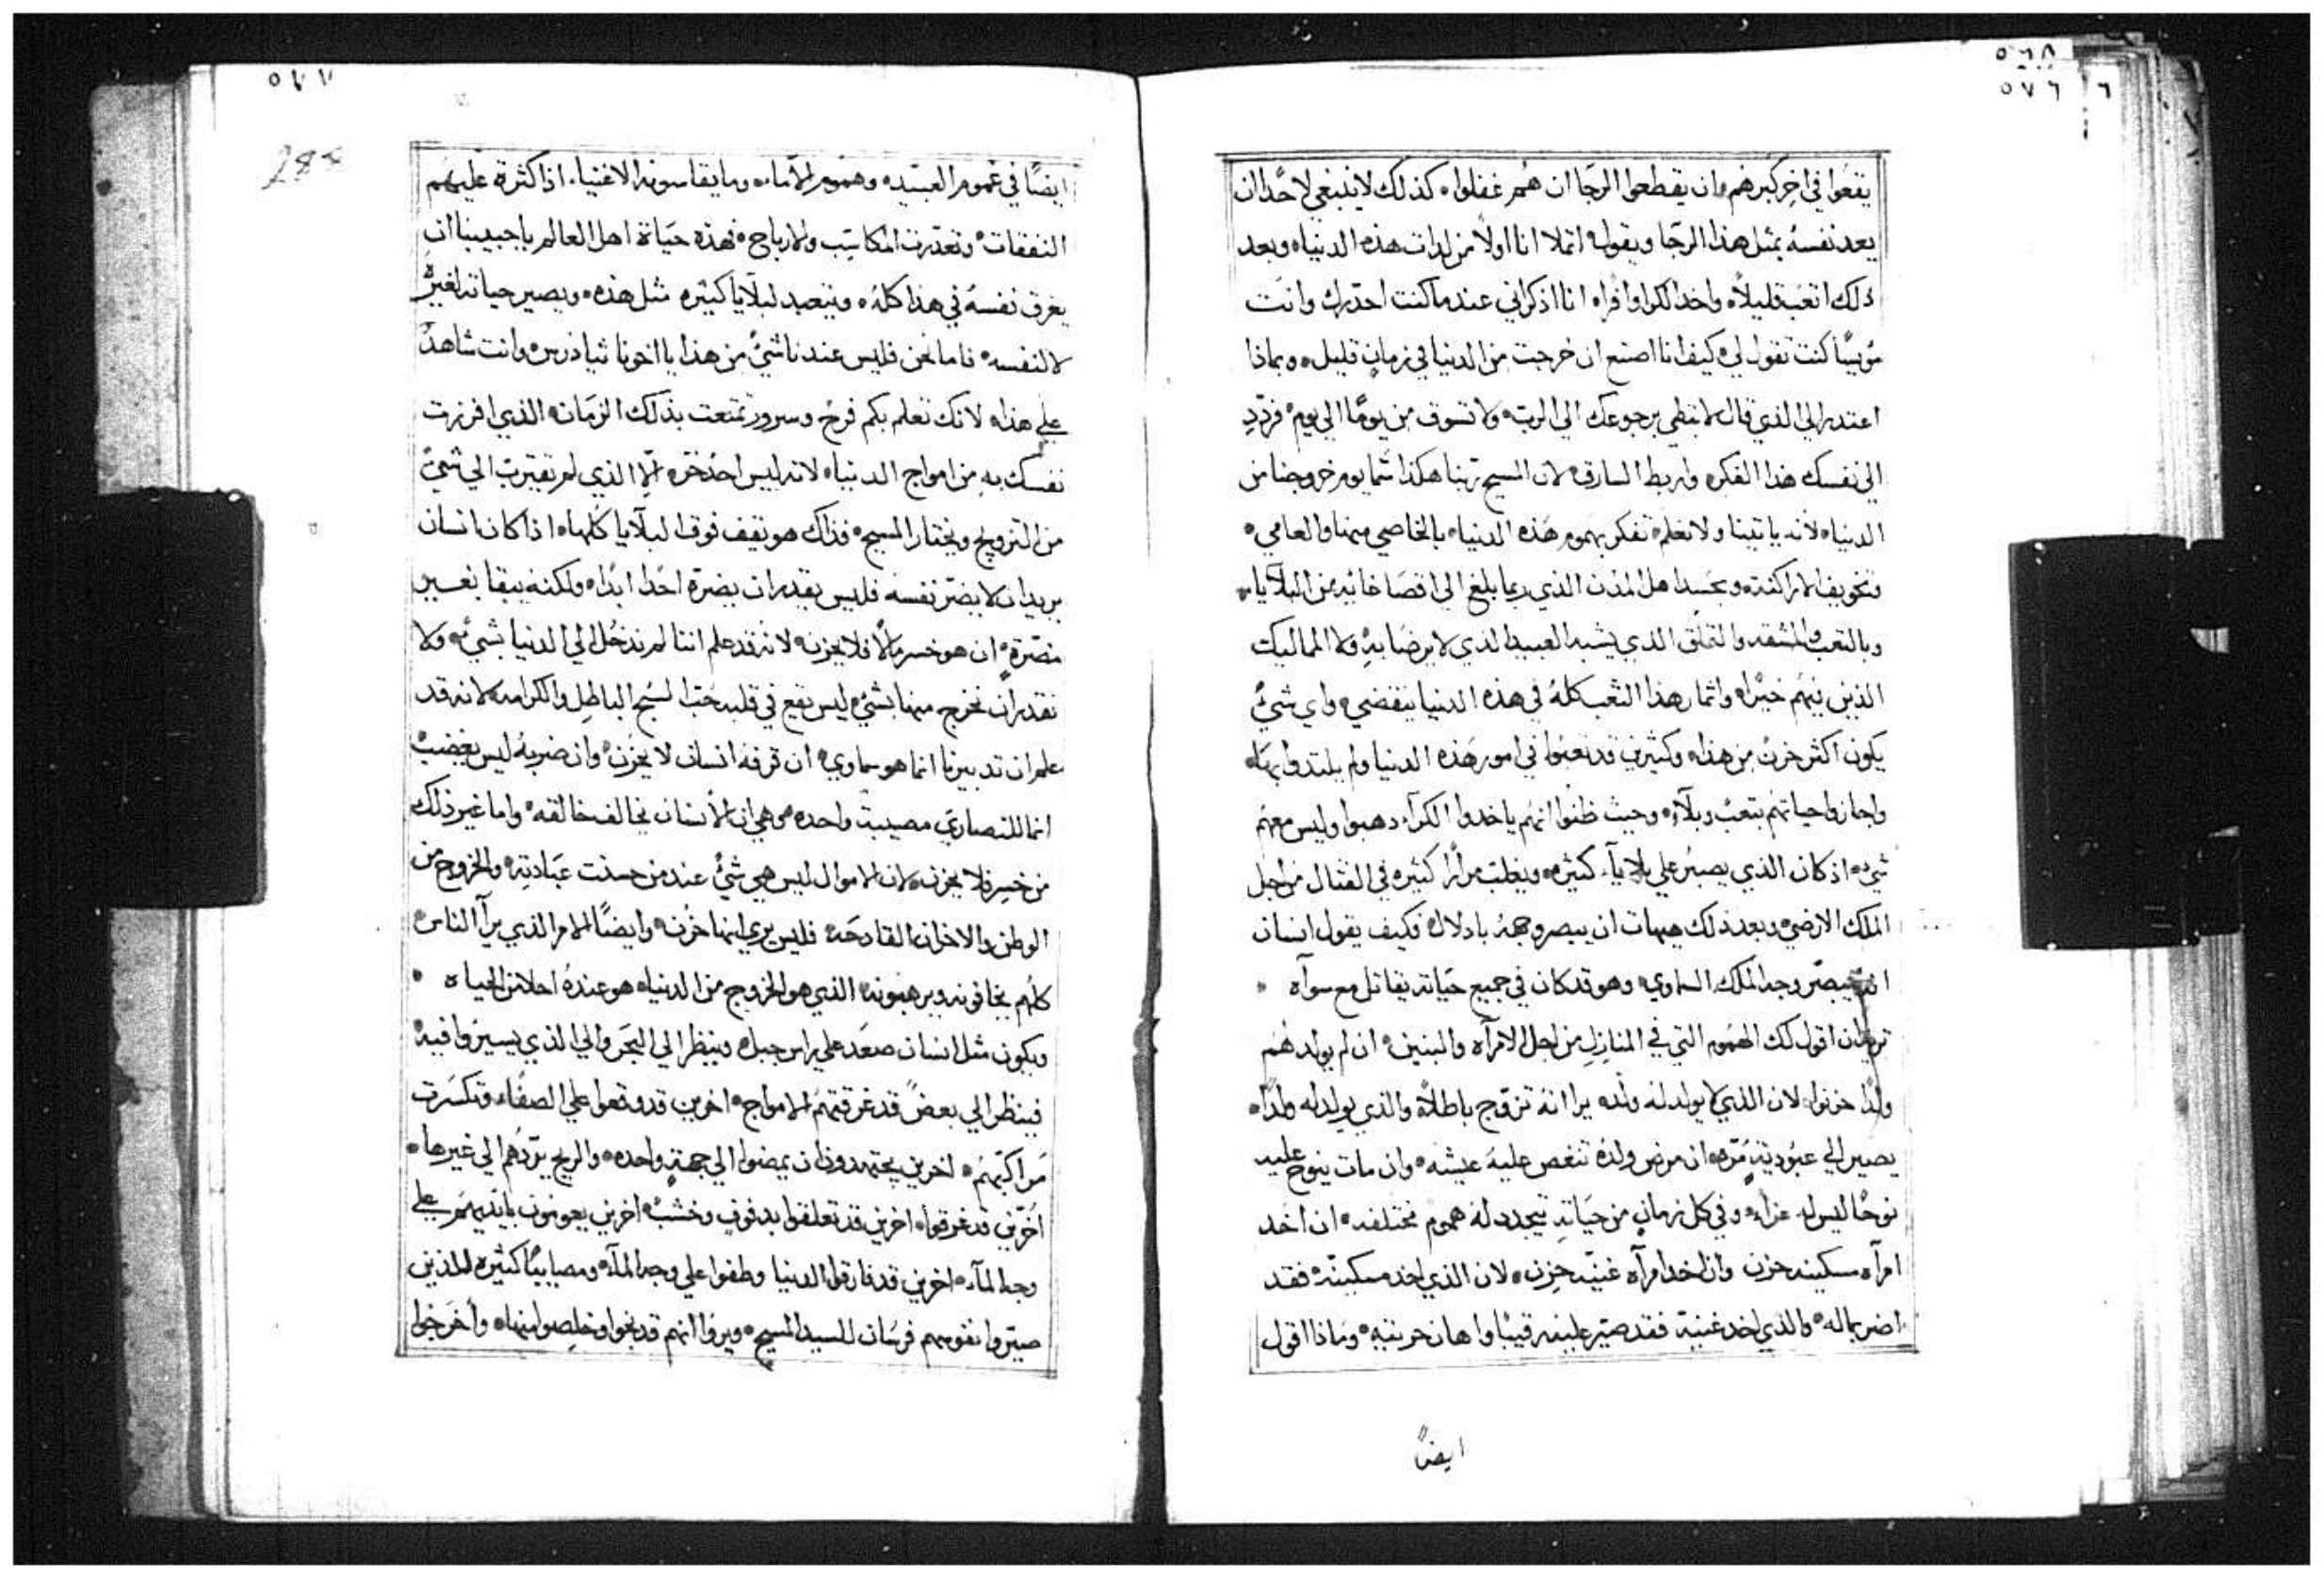 ٥٦٨
٥٧٦
٦
يقعوا في اخر كبرهم وان يقطعوا الرجا ان هُم غفلوا كذلك لا ينبغي لاحًد ان
يعد نفسهُ بمثل هذا الرجا ويقول اتملا انا اولاً من لدات هذه الدنيا وبعد
ذلك اتعَب قليلاً واخد الكرا وافراً انا اذكر اني عندما كنت احدّرك وانت
كنت تقول لي كيف انا اصنع ان خرجت من الدنيا في زمانٍ قليل وبماذا
اعتدر الي الذي قال لا تبطي برجوعك الي الرب ولا تسوف من يومًا الي يوم فردّد
الي نفسك هذا الفكره واربط السارق لان المسيح ربنا هكذا سما يوم خروجنا من
الدنيا لانه ياتينا ولا نعلم تفكر بهموم هَذه الدنيا بالخاصي منها والعامي
وتخويف الاراكنه وبحسد اهل المدن الذي ربما بلغ الي اقصَا غايه من البلايا
وبالتعب والمشقه والتملّق الذي يشبه العبيد الذي لا يرضَا بهِ ولا المماليك
الذين فيهَم خيرًا واثمار هذا التعَب كلهُ في هذه الدنيا ينقضي واي شيً
يكون اكثر حزنً من هذا وكثيرين قد تعبُوا في امور هَذه الدنيا ولم يلتدوا بهَا
واجازوا حياتهُم بتعبً وبلآءً وحيث ظنُوا انهُم ياخدوا الكرآء دهبوا وليس معهُم
شي اذ كان الذي يصبرُ علي بلايآء كثيره ويغلب مرارًا كثيره في القتال من اجل
الملك الارضي وبعد ذلك هيهات ان يبصر وجههُ بادلال فكيف يقول انسان
انه يبصر وجه الملك السماوي وهو قد كان في جميع حَياته يقاتل مع سوآه
تريد ان اقول لك الهمُوم التي في المنازل من اجل الامرآه والبنين ان لم يولد لهُم
ولدًا حزنوا لان الذي لا يولد له ولده يرا انهُ تزوّج باطلاً والذي يولد له ولدًا
يصير الي عبُوديةٍ مُرّه ان مرض ولدهُ تنغص عليهَ عيشه وان مات ينوح عليه
نوحًا ليس له عزاء وفي كل زمانٍ من حيَاتهِ يتجدد لهُ هموم مختلفه ان اخد
امرآه مسكينه حزن وان اخد امرآه غنيّه حزن لان الذي اخد مسكينهً فقد
اضر بماله والذي اخد غنيه فقد صيّر عليه رقيبًا واهان حريتهِ ومَاذا اقول
ايضًا
٥٧٧
288
ايضًا في غموم العبيّد وهموم الآماء وما يقاسونه الاغنياء اذا كثرة عليهم
النفقات وتعدّرت المكاسَب والارباح فهذه حيَاة اهل العالم يا حبيبنا ان
يغرق نفسهُ في هذا كلهُ ويتعبد لبلايا كثيره مثل هذه ويصير حياته لغيرهُ
لا لنفسه فاما نحن فليس عندنا شيً من هذا يا اخونا ثياذرس وانت شاهدٌ
علي هذا لانك تعلم بكم فرحً وسرور تمتعت بذلك الزمَان الذي افرزت
نفسك بهِ من امواج الدنيا لانه ليس احدٌ حرّ الّا الذي لم يقترب الي شيً
من التزويج ويختار المسيح فذاك هو يقف فوق البلايا كُلها اذا كان انسان
يريد ان لا يضرّ نفسهُ فليس يقدر ان يضرّه احدًا ابدًا ولكنهُ يبقا بغير
مضرّةٍ ان هو خسر مالاً فلا يحزن لانه قد علم اننا لم ندخُل الي الدنيا بشيً ولا
نقدر ان نخرج منها بشيً ليس يقع في قلبه حَب السُبح الباطل والكرامه لانه قد
علم ان تدبيرنا انما هو سماوي ان قرفهُ انسان لا يحزن وان ضربهُ ليس يغضبً
انما للنصاري مصيبه واحده وهي ان الانسان يخالف خالقه واما غير ذلك
من خسر فلا يحزن لان الاموال ليس هي شيً عند من حسنت عبَادته والخروج من
الوطن والاحزان القادحَه فليس يري انها حُزن وايضًا الامر الذي يرآ الناس
كلهُم يخافونه ويرهبونه الذي هو الخروج من الدنيا هو عندهُ احلا من الحياه
ويكون مثل انسان صعَد علي راس جبل فينظر الي البحَر والي الذي يسيرَوا فيه
فينظر الي بعضً قد غرقتهمُ الامواج اخرين قد وقعوا علي الصفا وتكسَرت
مَراكبَهُم اخرين يجتهدون ان يمضوا الي جهةٍ واحده والريح يردّهُم الي غيرها
اخرين قد غرقوا اخرين قد تعلقوا بدفوفٍ وخشبً اخرين يعومون بايديهم علي
وجه المآء اخرين قد فارقوا الدنيا وطفوا علي وجه المآء ومصايبًا كثيره للذين
صيّروا نفوسهم فرسَان للسيد المسيح ويروا انهم قد نجوا وخلصوا منها واخَرجوا